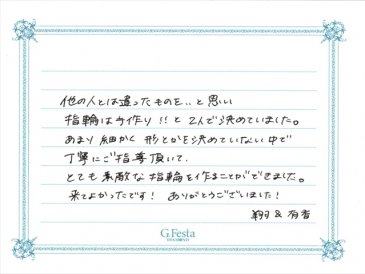 他の人とは違ったものを..と思い
指輪は手作り!!と2人で決めていました。
あまり細かく形とかを決めていない中で
丁寧にご指導頂いて、
とても素敵な指輪を作ることができました。
来てよかったです! ありがとうございました!
翔&有香
G.Festa
DIAMOND